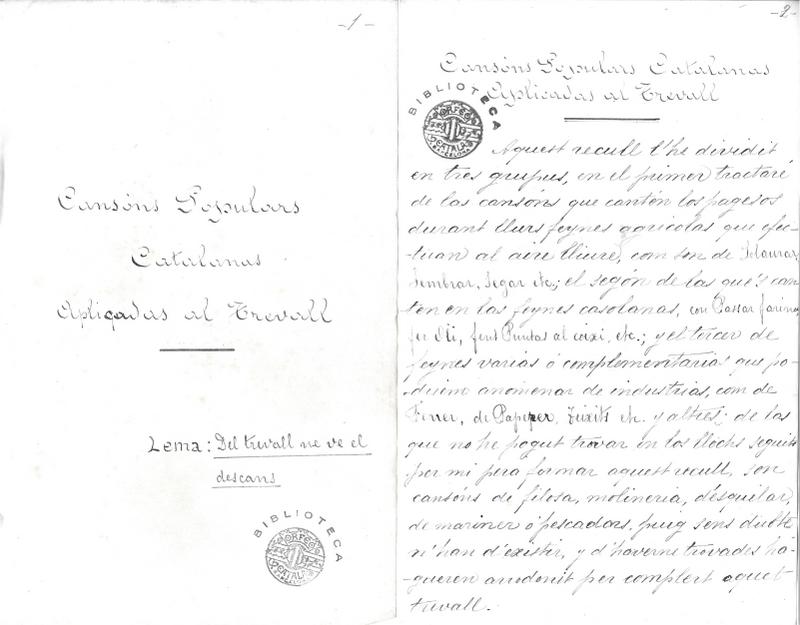 -1-
Cansóns Populars
Catalanas
Aplicadas al Trevall
Lema: Del trevall ne ve el
descans
BIBLIOTECA
ORFEÓ
CATALÀ
-2-
Cansóns Populars Catalanas
Aplicadas al Trevall
BIBLIOTECA
ORFEÓ
CATALÀ
Aquest recull l'he dividit
en tres grupus, en el primer tractaré
de las cansóns que cantén los pagesos
durant llurs feynes agricolas que efec-
tuan al aire lliure, com son de
Sembrar, Segar etc; el segón de las qué's can-
ten en las feynes casolanas, con Passar farina
fer Oli, fent Puntas al coixi, etc.; y el tercer de
feynes varias ó complementarias que po-
driem anomenar de industrias, com de
Ferrer, de Papeper, Teixits etc. y altres; de las
que no he pogut trovar en los llochs seguits
por mi pera formar aquest recull, son
cansóns de filosa, molineria, d'esquilar,
de mariner ó pescadors, puig sens dubte
n'han d'existir, y d'haverne trovades ha-
gueren arrodonit per complert aquet
trevall.